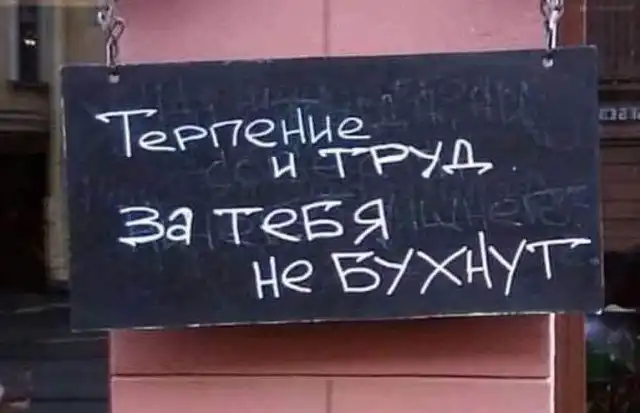 Терпение
и труд
за тебя
не бухнут